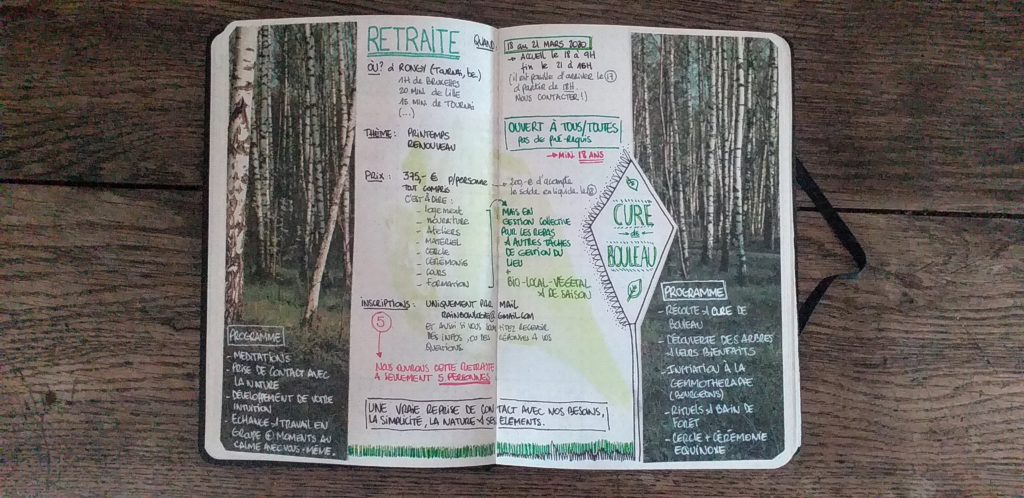 RETRAITE
QUAND:
18 au 21 MARS 2020
→ ACCUEIL le 18 à 9H
fin le 21 à 16H
(il est possible d'arriver le 17
à partir de 18H.
NOUS CONTACTER!)
OÙ? à RONGY (TOURNAI, be.)
1H de BRUXELLES
20 MIN de LILLE
15 MIN de TOURNAI
(...)
OUVERT À TOUS/TOUTES
pas de pré-requis
→ MIN 18 ANS
THÈME: PRINTEMPS
RENOUVEAU
PRIX: 375,- € P/PERSONNE
TOUT COMPRIS
C'EST À DIRE:
- logement
- nourriture
- Ateliers
- MATÉRIEL
- CERCLE
- CÉRÉMONIE
- COURS
- FORMATION
→ 200,-€ d'acompte
le solde en liquide le 18
MAIS EN
GESTION COLLECTIVE
POUR LES REPAS
& AUTRES TÂCHES
DE GESTION DU
LIEU
+
BIO-LOCAL-VÉGÉTAL
& DE SAISON
CURE
de
BOULEAU
INSCRIPTIONS: UNIQUEMENT PAR MAIL
@GMAIL.COM
ET AUSSI SI VOUS RECEVOIR
DES INFOS, OU DES RÉPONSES À VOS
QUESTIONS
5
NOUS OUVRONS CETTE RETRAITE
À SEULEMENT 5 PERSONNES
UNE VRAIE REPRISE DE CONTACT AVEC NOS BESOINS,
LA SIMPLICITÉ, LA NATURE & SES ÉLÉMENTS.
PROGRAMME
- MÉDITATIONS
- PRISE DE CONTACT AVEC
LA NATURE
- DÉVELOPPEMENT DE VOTRE
INTUITION
- ÉCHANGE & TRAVAIL EN
GROUPE & MOMENTS AU
CALME AVEC VOUS-MÊME.
PROGRAMME
- RÉCOLTE & CURE DE
BOULEAU
- DÉCOUVERTE DES ARBRES
& LEURS BIENFAITS
- INITIATION À LA
GEMMOTHÉRAPIE
(BOURGEONS)
- RITUELS & BAIN DE
FORÊT
- CERCLE + CÉRÉMONIE
EQUINOXE